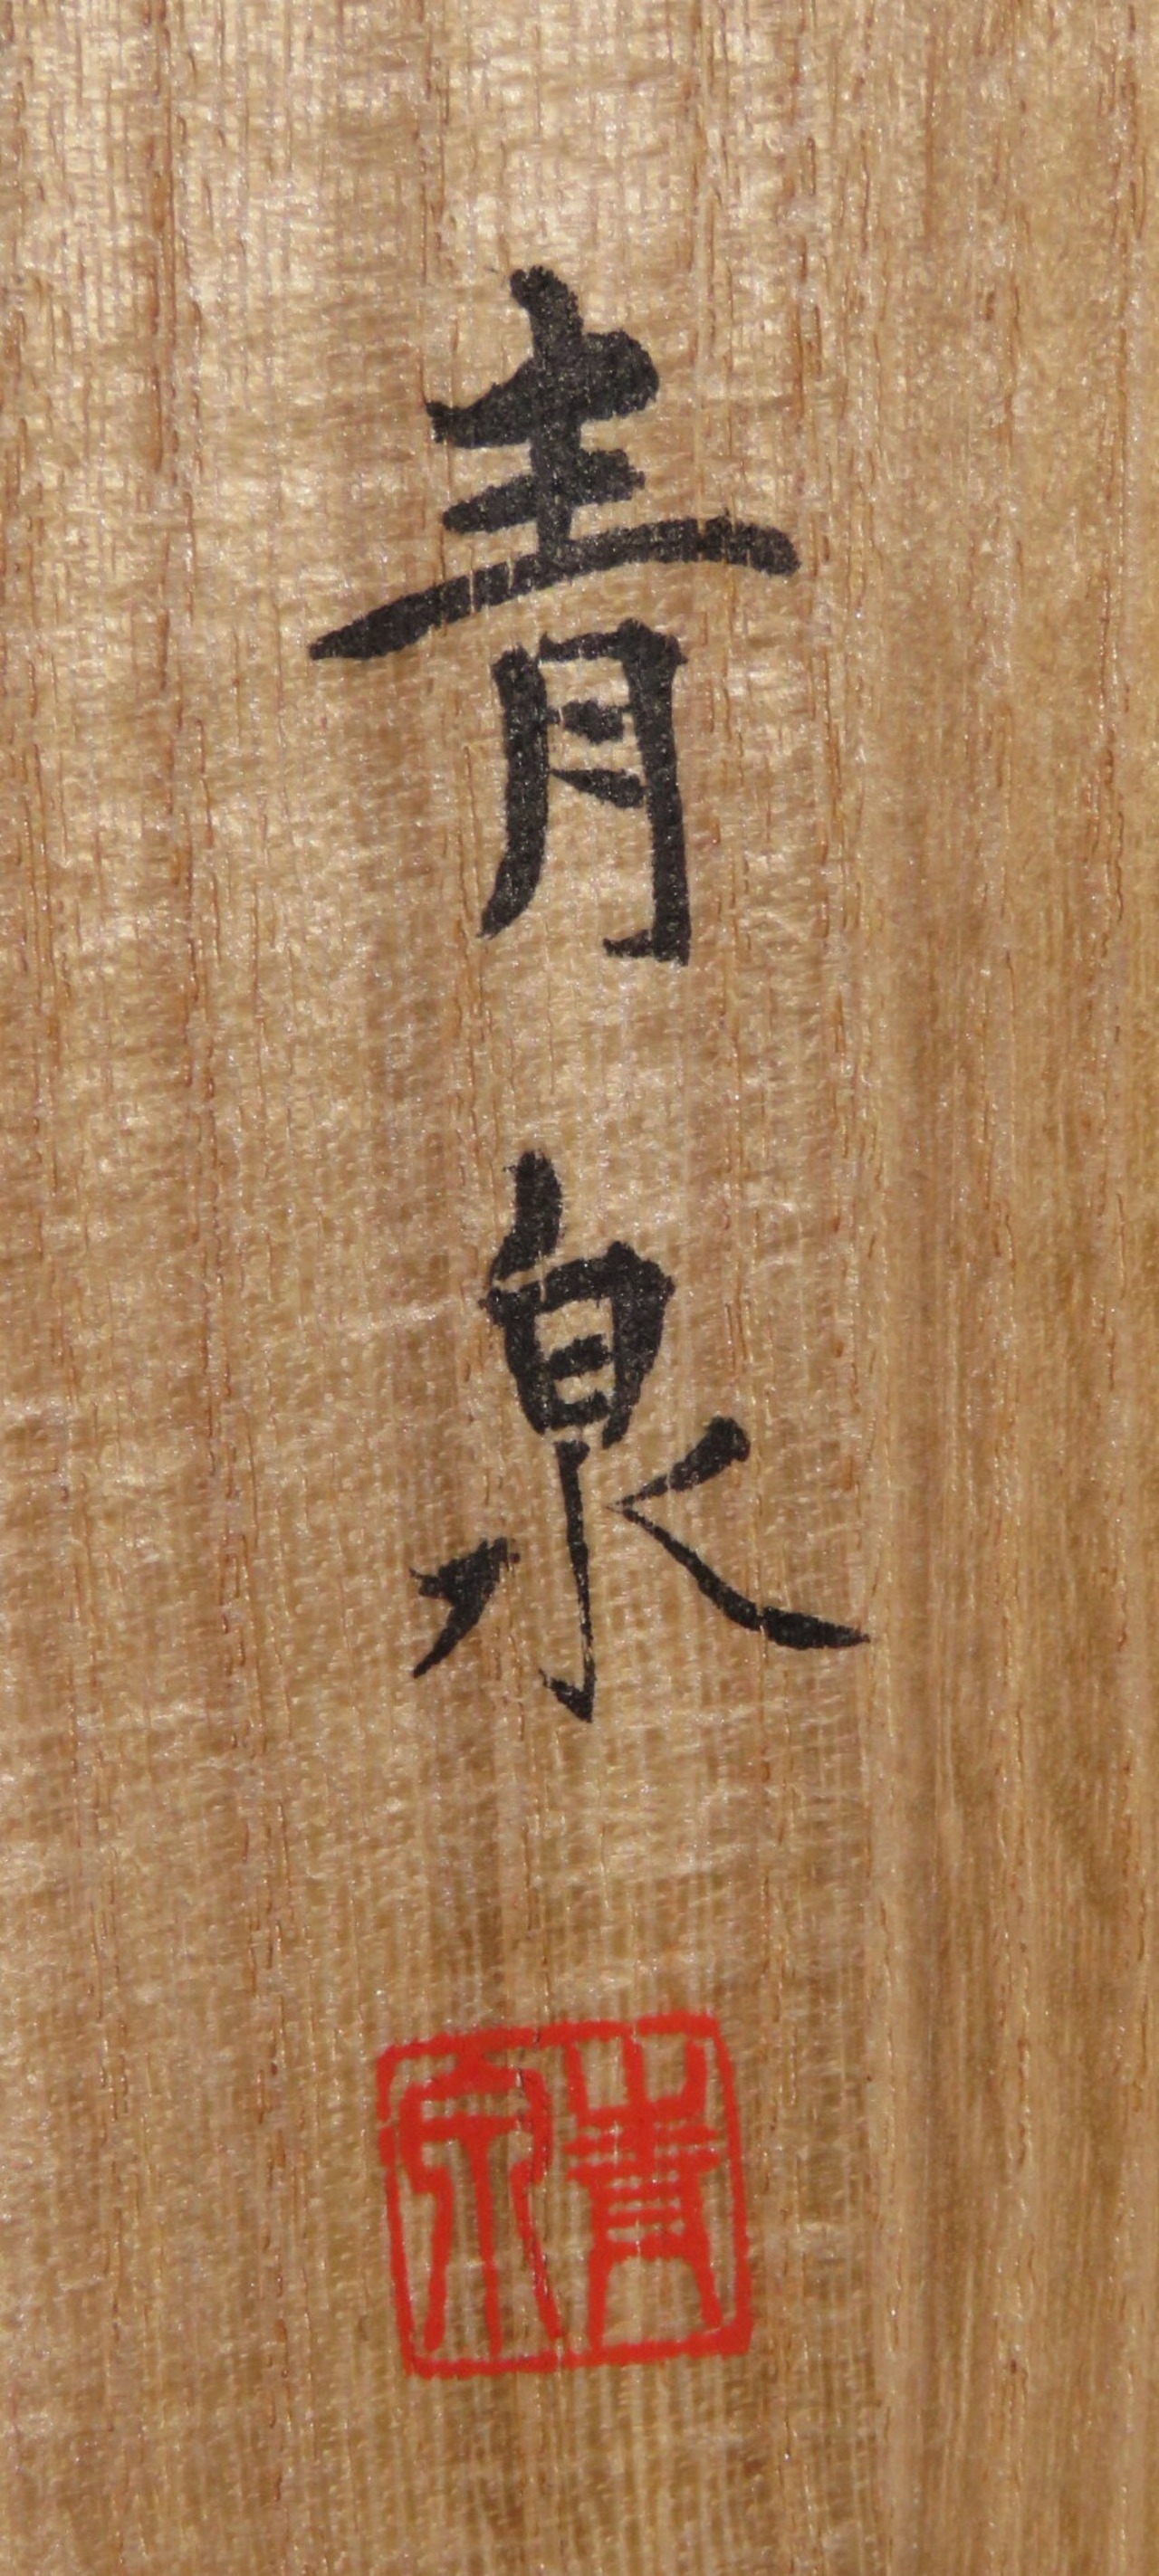 青泉
青泉